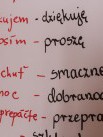 kujem - dziękuję
osím - proszę
chuť - smaczne
noc - dobranoc
prepáčte - przepra